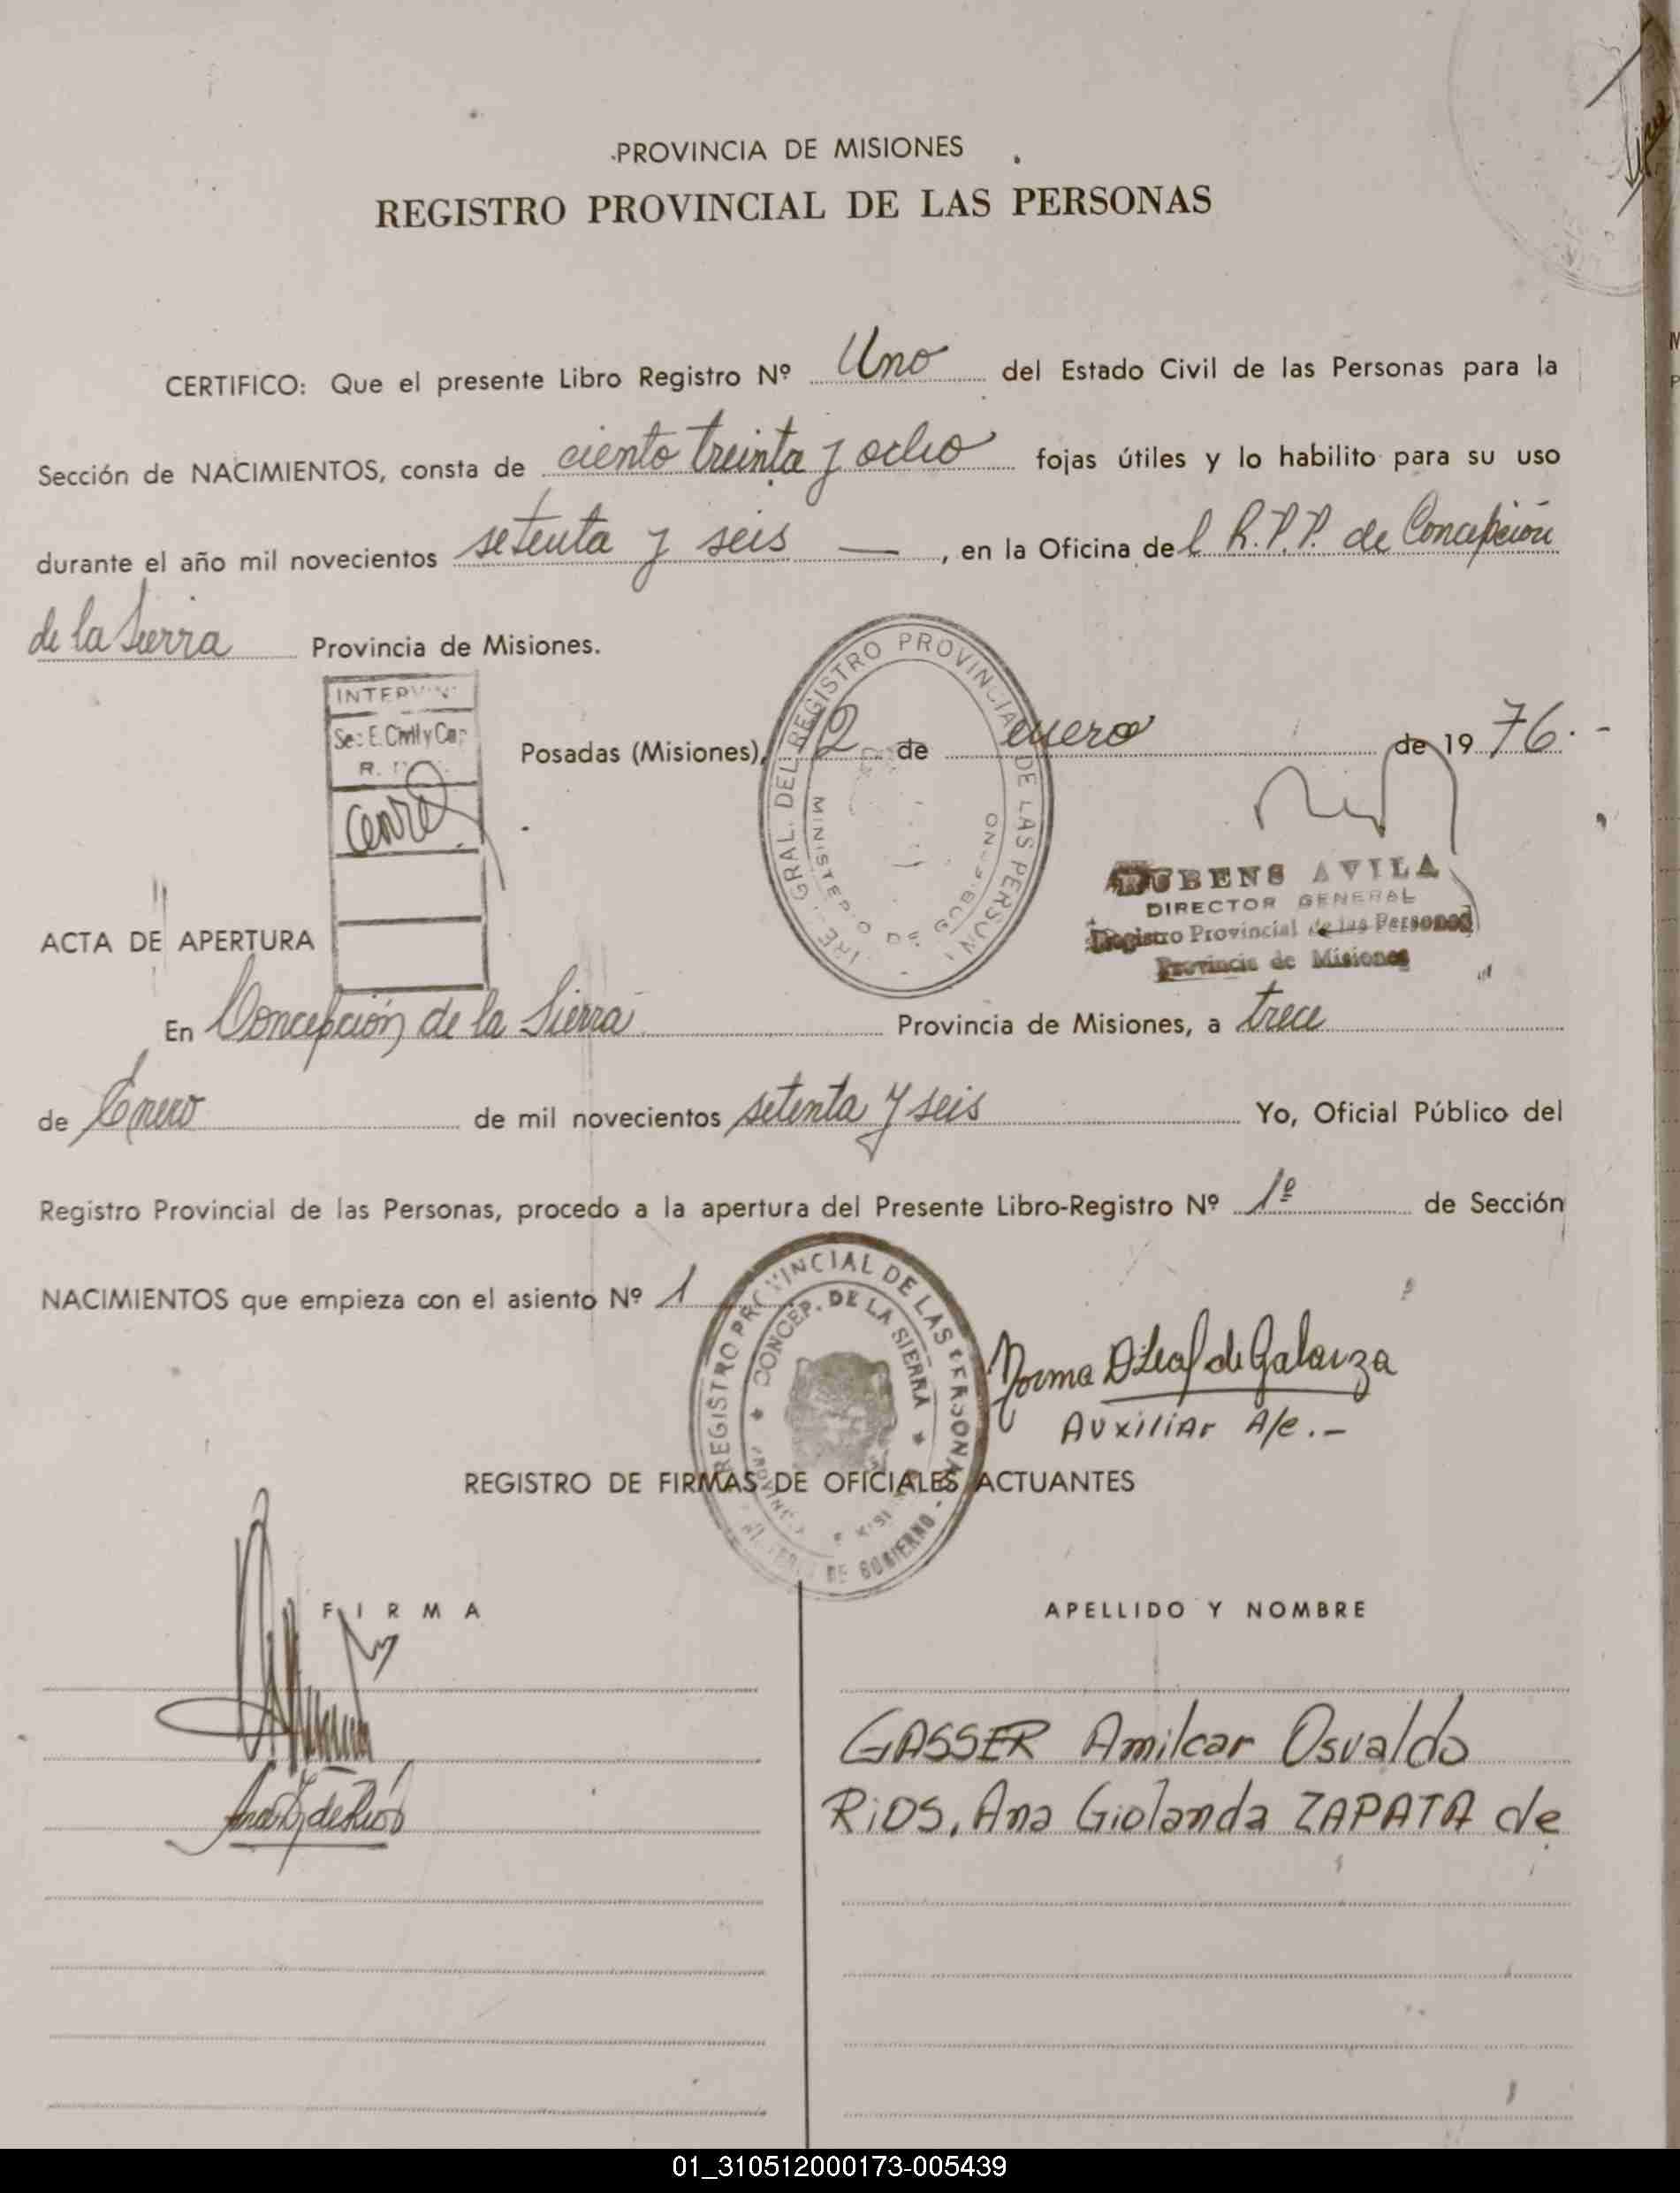 PROVINCIA DE MISIONES
REGISTRO PROVINCIAL DE LAS PERSONAS
CERTIFICO: Que el presente Libro Registro Nº Uno del Estado Civil de las Personas para la
Sección de NACIMIENTOS, consta de ciento treinta y ocho fojas útiles y lo habilito para su uso
durante el año mil novecientos setenta y seis —, en la Oficina del R.P.P. de Concepción
de la Sierra Provincia de Misiones.
Sec. E. Civil y Cap
R.
Posadas (Misiones), 2 de enero de 1976.-
REGISTRO PROVINCIAL DE LAS PERSON
GRAL. DEL
MINISTERIO DE GOBIERNO
RUBENS AVILA
DIRECTOR GENERAL
Registro Provincial de las Personas
Provincia de Misiones
ACTA DE APERTURA
En Concepción de la Sierra Provincia de Misiones, a trece
de Enero de mil novecientos setenta y seis Yo, Oficial Público del
Registro Provincial de las Personas, procedo a la apertura del Presente Libro-Registro Nº 1º de Sección
NACIMIENTOS que empieza con el asiento Nº 1
REGISTRO PROVINCIAL DE LAS PERSONAS
CONCEP. DE LA SIERRA
DE GOBIERNO
Norma de Galarza
Auxiliar A/c.-
REGISTRO DE FIRMAS DE OFICIALES ACTUANTES
FIRMA
APELLIDO Y NOMBRE
GASSER Amilcar Osvaldo
RiOS, Ana Giolanda ZAPATA de
01_310512000173-005439